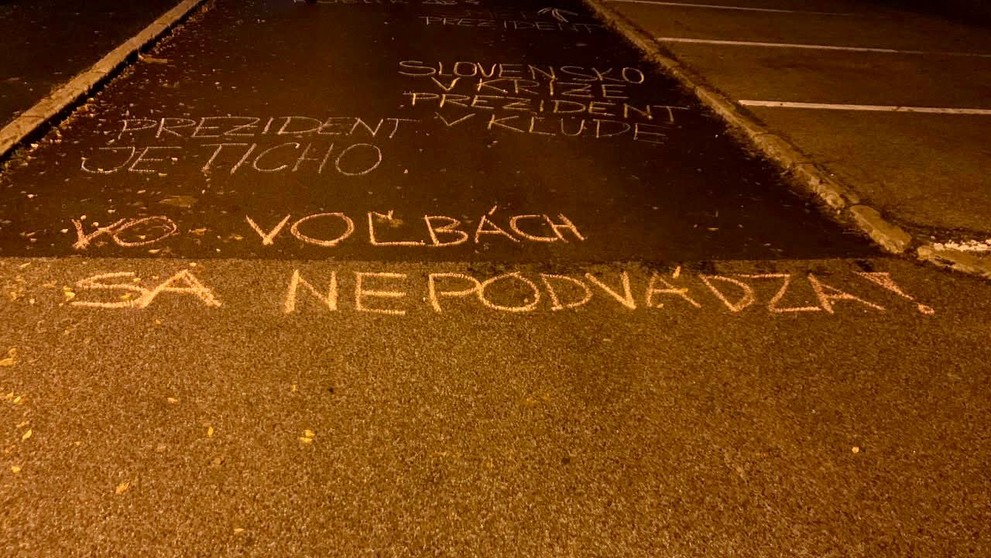 PREZIDENT
SLOVENSKO
V KRÍZE
PREZIDENT
V KĽUDE
PREZIDENT
JE TICHO
VO VOĽBÁCH
SA NEPODVÁDZA!